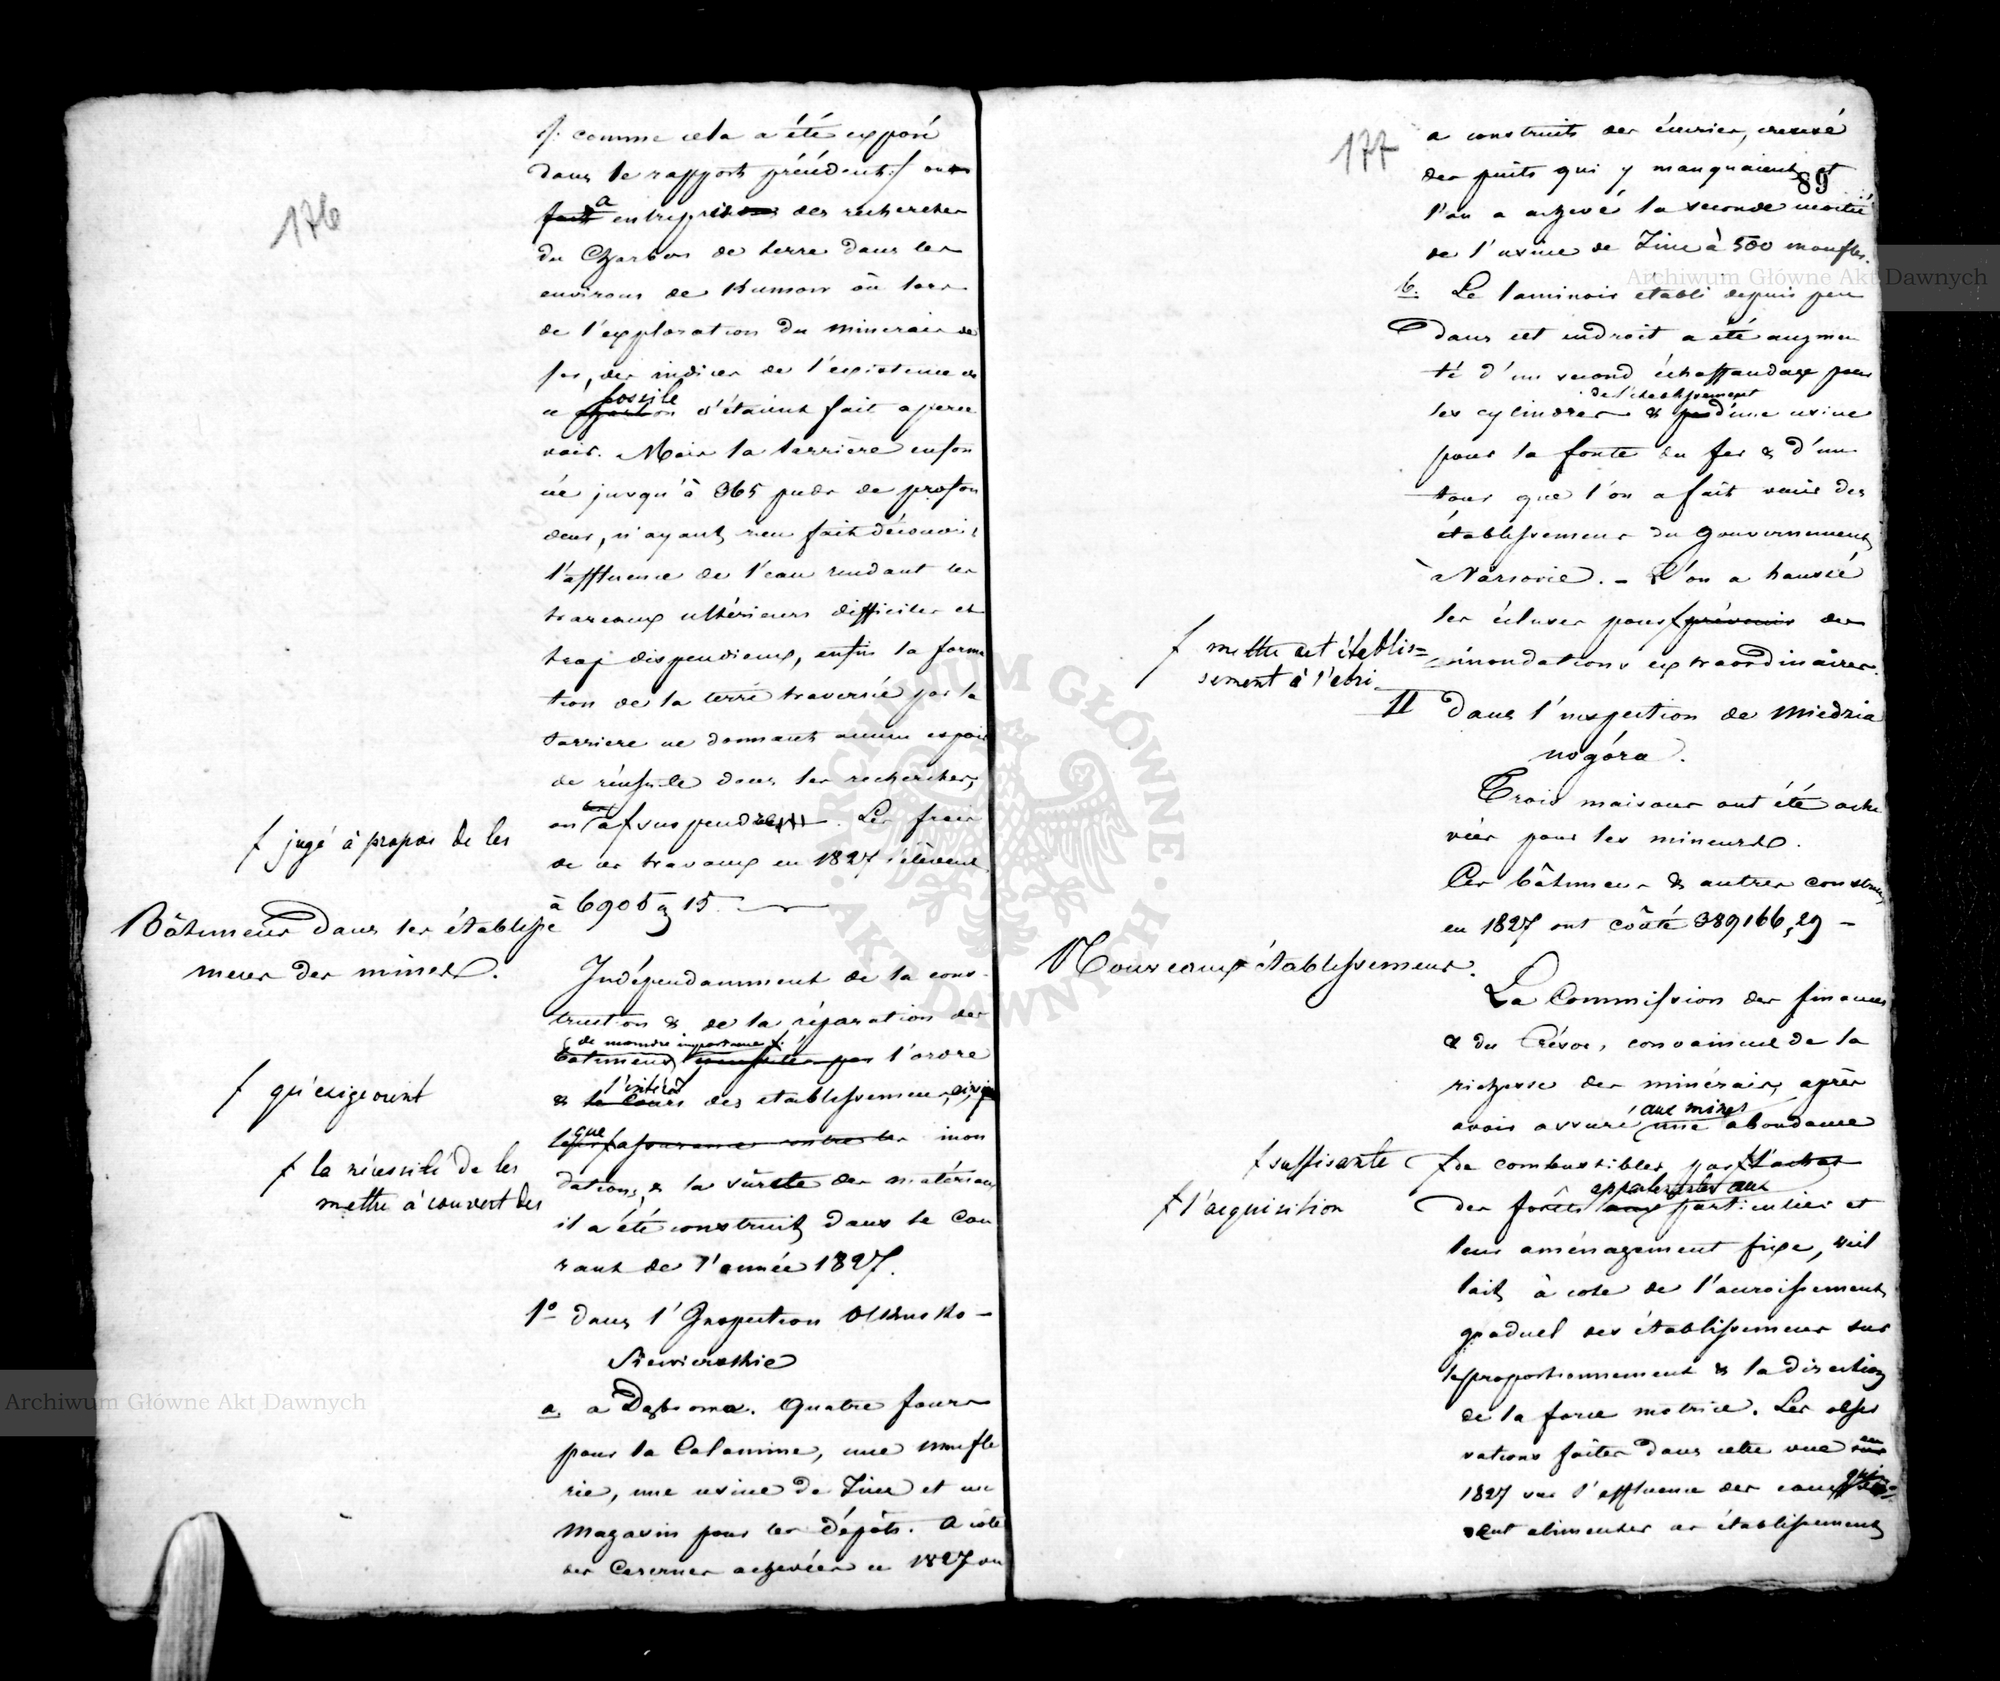 176
/: comme cela a été exposé
dans le rapport précédent :/ on
fait a entrepris des recherches
du Charbon de terre dans les
environs de où lors
de l'exploration du minerais de
fer, des indices de l'existence de
ce charbon fossile s'étaient fait aperce
voir. Mais la tarrière enfon
cée jusqu'à 365 pieds de profon
deur, n'ayant rien fait découvrir
l'affluence de l'eau rendant les
travaux ultérieurs difficiles et
trop dispendieux, enfin la forma
tion de la terre traversée par la
tarriere ne donnant aucun espoir
de réussite dans les recherches,
on a f suspendre. Les frais
f jugé à propos de les
de ces travaux en 1827 s'élèvent
à 6905 g 15.
Bâtimens dans les établisse
mens des mines.
Indépendamment de la cons-
truction & de la réparation des
batimens de moindre importance f. l'ordre
f qu'exigeaient
& le Cours l'intérêt des etablissemens,
que f assurance contre les inon
f la nécessité de les
mettre à couvert des
dations, & la sûreté des matériaux
il a été construit dans le Cou
rant de l'année 1827.
1° dans l'Inspection Olkusko-
Siewierskie
a, a Dąbrowa. Quatre fours
pour la Calamine, une moufle
rie, une usine de Zinc et un
Magasin pour les dépôts. A côté
des Casernes achevées en 1827 on
177
89
a construits des écuries, creusé
des puits qui y manquaient, et
l'on a achevé la seconde moitié
de l'usine de Zinc à 500 moufles.
b. Le laminoir établi depuis peu
dans cet endroit a été augmen
té d'un second échaffaudage pour
les cylindres & de l'établissement d'une usine
pour la fonte du fer & d'un
tour que l'on a fait venir des
établissemens du Gouvernement
à Varsovie. - L'on a haussé
les écluses pour f prévenir des
f mettre cet établis=
sement à l'abri
inondations extraordinaires.
II Dans l'inspection de Miedzia
nogóra.
Trois maisons ont été ache
vées pour les mineurs.
Ces bâtimens & autres construits
en 1827 ont coûté 389166,29 -
Nouveaux établissemens.
La Commission des finances
& du Trésor, convaincue de la
richesse des minérais, après
avoir assuré aux mines une abondance
f suffisante f de combustibles, par f l'achat
f l'acquisition
des forêts aux appartenantes aux particuliers et
leur aménagement fixe, veil
lait, à coté de l'accroissement
graduel des établissemens sur
le proportionnement & la direction
de la force motrice. Les obser
vations faites dans cette vue sur en
1827 sur l'affluence des eaux qui
vent alimenter ces établissemens
Archiwum Główne Akt Dawnych
Archiwum Główne Akt Dawnych
ARCHIWUM GŁÓWNE AKT DAWNYCH